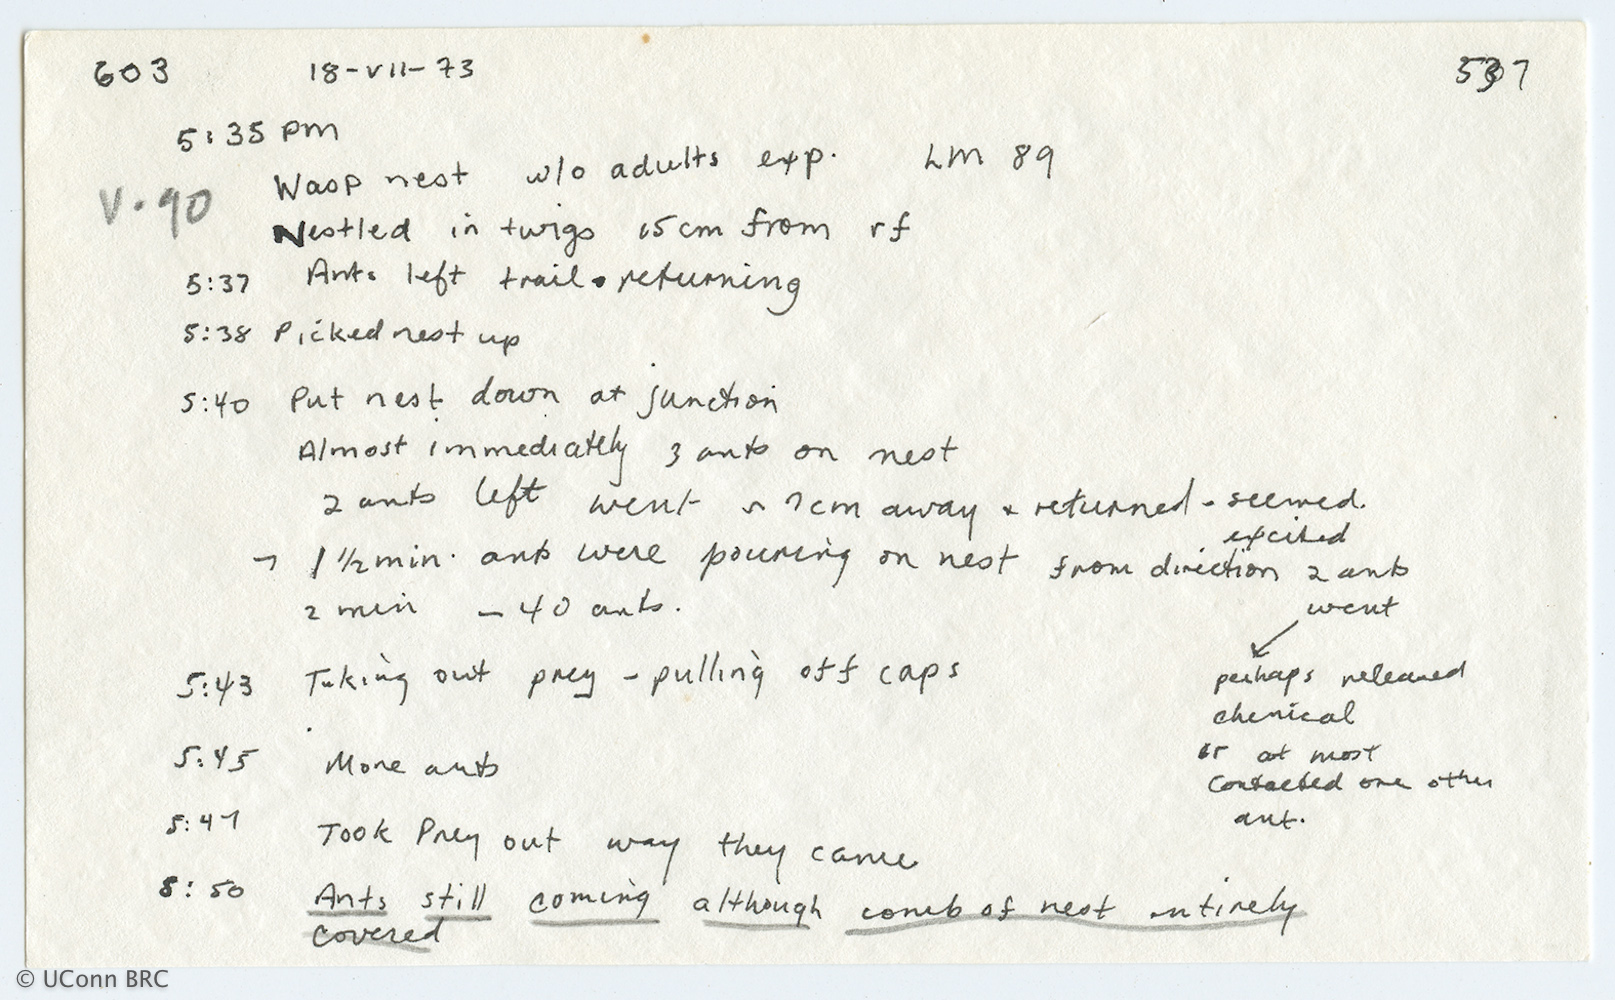 603 18-VII-73 537
5:35 pm
Wasp nest w/o adults exp. LM 89
V.90
Nestled in twigs 15cm from rf
5:37 Ants left trail • returning
5:38 Picked nest up
5:40 Put nest down at junction
Almost immediately 3 ants on nest
2 ants left went ~ 7cm away & returned - seemed
excited
→ 1 1/2 min. ants were pouring on nest from direction 2 ants
went
2 min – 40 ants.
5:43 Taking out prey – pulling off caps
perhaps released
chemical
or at most
contacted one other
ant.
5:45 More ants
5:47 Took Prey out way they came
5:50 Ants still coming although comb of nest entirely
covered
© UConn BRC